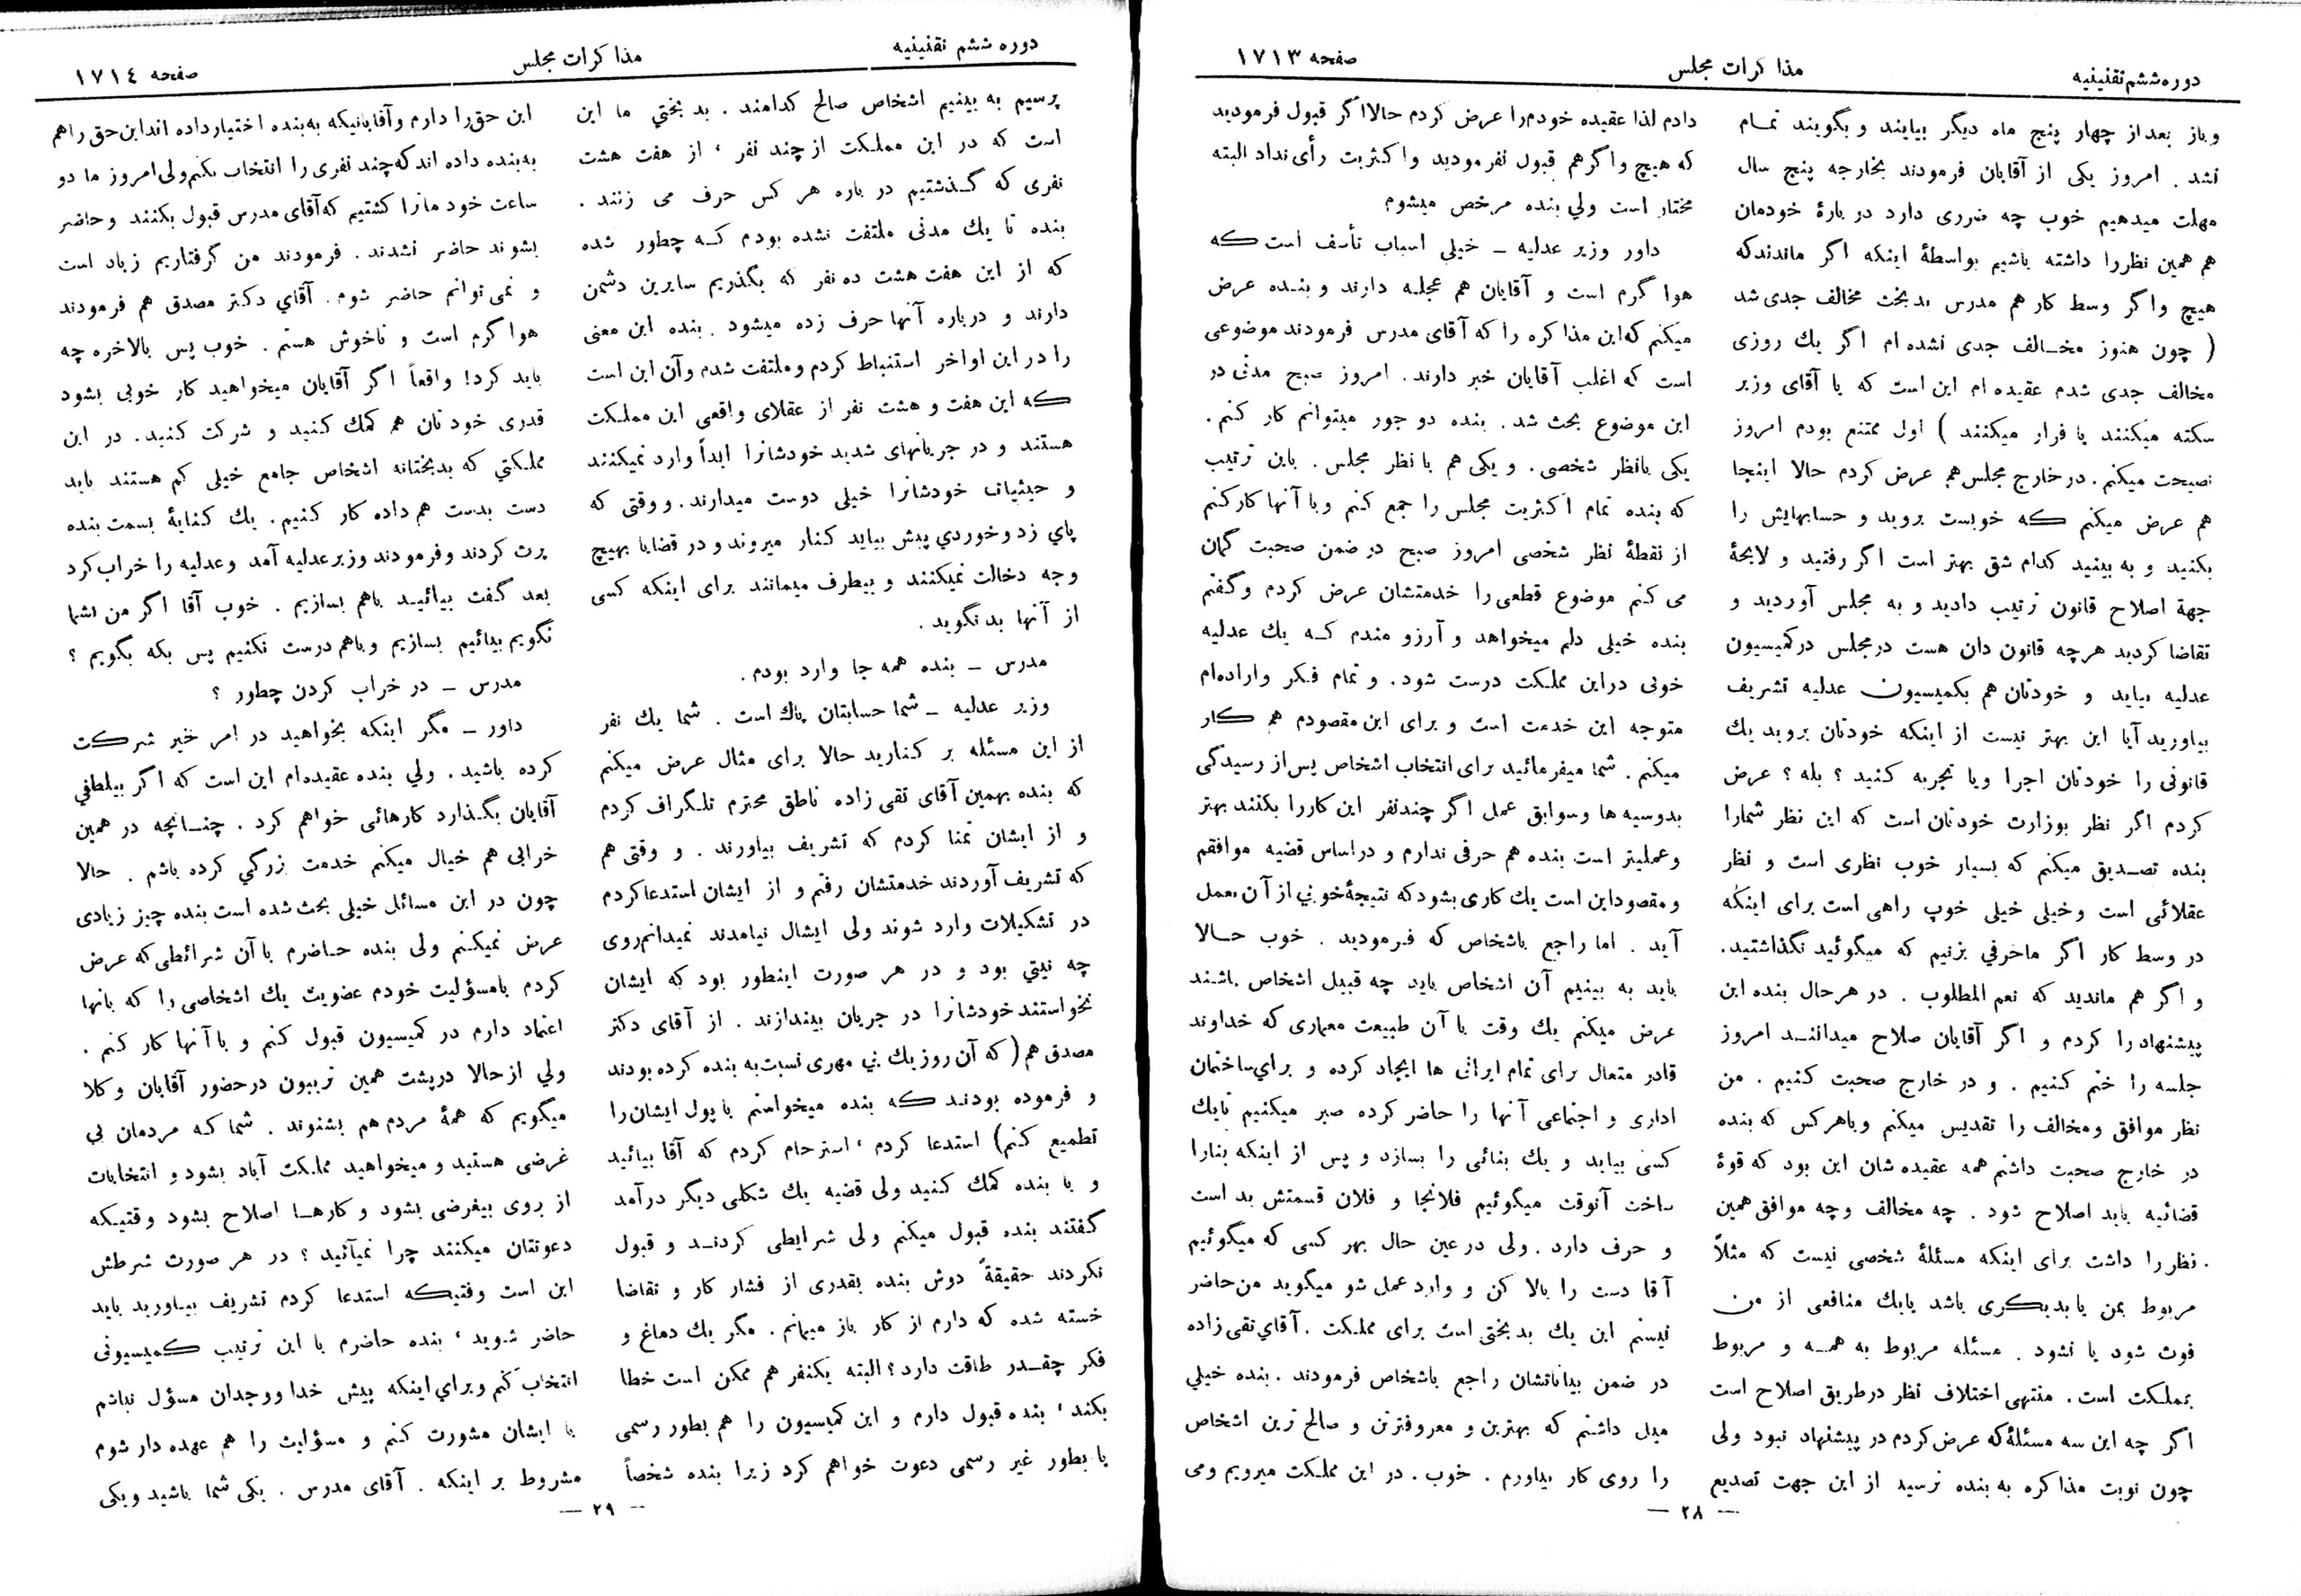 دوره ششم تقنینیه
مذاکرات مجلس
صفحه ۱۷۱۳
و باز بعد از چهار پنج ماه دیگر بیایند و بگویند تمام
نشد . امروز یکی از آقایان فرمودند بخارجه پنج سال
مهلت میدهیم خوب چه ضرری دارد در بارهٔ خودمان
هم همین نظر را داشته باشیم بواسطهٔ اینکه اگر ماندند که
هیچ و اگر وسط کار هم مدرس بدبخت مخالف جدی شد
( چون هنوز مخالف جدی نشده ام اگر یك روزی
مخالف جدی شدم عقیده ام این است که یا آقای وزیر
سکته میکنند یا فرار میکنند ) اول ممتنع بودم امروز
نصیحت میکنم . در خارج مجلس هم عرض کردم حالا اینجا
هم عرض میکنم که خوبست بروید و حسابهایش را
بکنید و به بینید کدام شق بهتر است اگر رفتید و لایحهٔ
جهة اصلاح قانون ترتیب دادید و به مجلس آوردید و
تقاضا کردید هرچه قانون دان هست در مجلس در کمیسیون
عدلیه بیاید و خودتان هم بکمیسیون عدلیه تشریف
بیاورید آیا این بهتر نیست از اینکه خودتان بروید یك
قانونی را خودتان اجرا و یا تجربه کنید ؟ بله ؟ عرض
کردم اگر نظر بوزارت خودتان است که این نظر شما را
بنده تصدیق میکنم که بسیار خوب نظری است و نظر
عقلائی است و خیلی خیلی خوب راهی است برای اینکه
در وسط کار اگر ما حرفي بزنیم که میگوئید نگذاشتید .
و اگر هم ماندید که نعم المطلوب . در هر حال بنده این
پیشنهاد را کردم و اگر آقایان صلاح میدانند امروز
جلسه را ختم کنیم . و در خارج صحبت کنیم . من
نظر موافق و مخالف را تقدیس میکنم و با هر کس که بنده
در خارج صحبت داشتم همه عقیده شان این بود که قوهٔ
قضائیه باید اصلاح شود . چه مخالف وچه موافق همین
نظر را داشت برای اینکه مسئلهٔ شخصی نیست که مثلاً
مربوط بمن یا بدیگری باشد یا یك منافعی از من
فوت شود یا نشود . مسئله مربوط به همه و مربوط
بمملکت است . منتهی اختلاف نظر در طریق اصلاح است
اگر چه این سه مسئلهٔ که عرض کردم در پیشنهاد نبود ولی
چون نوبت مذاکره به بنده نرسید از این جهت تصدیع
دادم لذا عقیده خودم را عرض کردم حالا اگر قبول فرمودید
که هیچ و اگر هم قبول نفرمودید و اکثریت رأی نداد البته
مختار است ولي بنده مرخص میشوم
داور وزیر عدلیه ـ خیلی اسباب تأسف است که
هوا گرم است و آقایان هم عجله دارند و بنده عرض
میکنم که این مذاکره را که آقای مدرس فرمودند موضوعی
است که اغلب آقایان خبر دارند . امروز صبح مدتی در
این موضوع بحث شد . بنده دو جور میتوانم کار کنم .
یکی با نظر شخصی . و یکی هم با نظر مجلس . باین ترتیب
که بنده تمام اکثریت مجلس را جمع کنم و با آنها کار کنم
از نقطهٔ نظر شخصی امروز صبح در ضمن صحبت گمان
می کنم موضوع قطعی را خدمتشان عرض کردم و گفتم
بنده خیلی دلم میخواهد و آرزو مندم که یك عدلیه
خوبی در این مملکت درست شود . و تمام فکر و اراده ام
متوجه این خدمت است و برای این مقصودم هم کار
میکنم . شما میفرمائید برای انتخاب اشخاص پس از رسیدگی
بدوسیه ها و سوابق عمل اگر چند نفر این کار را بکنند بهتر
و عملیتر است بنده هم حرفی ندارم و در اساس قضیه موافقم
و مقصود این است یك کاری بشود که نتیجهٔ خوبي از آن بعمل
آید . اما راجع باشخاص که فرمودید . خوب حالا
باید به بینیم آن اشخاص باید چه قبیل اشخاص باشند
عرض میکنم یك وقت با آن طبیعت معماری که خداوند
قادر متعال برای تمام ایرانی ها ایجاد کرده و براي ساختمان
اداری و اجتماعی آنها را حاضر کرده صبر میکنیم تا یك
کسی بیاید و یك بنائی را بسازد و پس از اینکه بنا را
ساخت آنوقت میگوئیم فلانجا و فلان قسمتش بد است
و حرف دارد . ولی در عین حال بهر کسی که میگوئیم
آقا دست را بالا کن و وارد عمل شو میگوید من حاضر
نیستم این یك بدبختی است برای مملکت . آقاي تقی زاده
در ضمن بیاناتشان راجع باشخاص فرمودند . بنده خیلي
میل داشتم که بهترین و معروفترین و صالح ترین اشخاص
را روی کار بیاورم . خوب . در این مملکت میرویم ومی
— ۲۸ —
دوره ششم تقنینیه
مذاکرات مجلس
صفحه ۱۷۱٤
پرسیم به بینیم اشخاص صالح کدامند . بد بختي ما این
است که در این مملکت از چند نفر ، از هفت هشت
نفری که گذشتیم در باره هر کس حرف می زنند .
بنده تا یك مدتی ملتفت نشده بودم که چطور شده
که از این هفت هشت ده نفر که بگذریم سایرین دشمن
دارند و درباره آنها حرف زده میشود . بنده این معنی
را در این اواخر استنباط کردم و ملتفت شدم و آن این است
که این هفت و هشت نفر از عقلای واقعی این مملکت
هستند و در جریانهای شدید خودشانرا ابداً وارد نمیکنند
و حیثیات خودشانرا خیلی دوست میدارند . و وقتی که
پاي زد و خوردي پیش بیاید کنار میروند و در قضایا بهیچ
وجه دخالت نمیکنند و بیطرف میمانند برای اینکه کسی
از آنها بد نگوید .
مدرس ـ بنده همه جا وارد بودم .
وزیر عدلیه ـ شما حسابتان پاك است . شما یك نفر
از این مسئله بر کنارید حالا برای مثال عرض میکنم
که بنده بهمین آقای تقی زاده ناطق محترم تلگراف کردم
و از ایشان تمنا کردم که تشریف بیاورند . و وقتی هم
که تشریف آوردند خدمتشان رفتم و از ایشان استدعا کردم
در تشکیلات وارد شوند ولی ایشان نیامدند نمیدانم روی
چه نیتي بود و در هر صورت اینطور بود که ایشان
نخواستند خودشانرا در جریان بیندازند . از آقای دکتر
مصدق هم ( که آن روز یك بي مهری نسبت به بنده کرده بودند
و فرموده بودند که بنده میخواستم با پول ایشان را
تطمیع کنم ) استدعا کردم ، استرحام کردم که آقا بیائید
و با بنده کمك کنید ولی قضیه یك شکلی دیگر درآمد
گفتند بنده قبول میکنم ولی شرایطی کردند و قبول
نکردند حقیقةً دوش بنده بقدری از فشار کار و تقاضا
خسته شده که دارم از کار باز میمانم . مگر یك دماغ و
فکر چقدر طاقت دارد ؟ البته یکنفر هم ممکن است خطا
بکند ، بنده قبول دارم و این کمیسیون را هم بطور رسمی
یا بطور غیر رسمی دعوت خواهم کرد زیرا بنده شخصاً
این حق را دارم و آقایانیکه به بنده اختیار داده اند این حق را هم
به بنده داده اند که چند نفری را انتخاب بکنم ولی امروز ما دو
ساعت خود ما را کشتیم که آقای مدرس قبول بکنند و حاضر
بشوند حاضر نشدند . فرمودند من گرفتاریم زیاد است
و نمی توانم حاضر شوم . آقاي دکتر مصدق هم فرمودند
هوا گرم است و ناخوش هستم . خوب پس بالاخره چه
باید کرد ! واقعاً اگر آقایان میخواهید کار خوبی بشود
قدری خودتان هم کمك کنید و شرکت کنید . در این
مملکتي که بدبختانه اشخاص جامع خیلی کم هستند باید
دست بدست هم داده کار کنیم . یك کنایهٔ بسمت بنده
پرت کردند و فرمودند وزیر عدلیه آمد و عدلیه را خراب کرد
بعد گفت بیائید باهم بسازیم . خوب آقا اگر من بشما
نگویم بیائیم بسازیم و باهم درست نکنیم پس بکه بگویم ؟
مدرس ـ در خراب کردن چطور ؟
داور ـ مگر اینکه بخواهید در امر خیر شرکت
کرده باشید . ولي بنده عقیده ام این است که اگر بیلطفي
آقایان بگذارد کارهائی خواهم کرد . چنانچه در همین
خرابی هم خیال میکنم خدمت بزرگي کرده باشم . حالا
چون در این مسائل خیلی بحث شده است بنده چیز زیادی
عرض نمیکنم ولی بنده حاضرم با آن شرائطی که عرض
کردم بامسؤلیت خودم عضویت یك اشخاصی را که بآنها
اعتماد دارم در کمیسیون قبول کنم و با آنها کار کنم .
ولي از حالا در پشت همین تریبون در حضور آقایان وکلا
میگویم که همهٔ مردم هم بشنوند . شما که مردمان بي
غرضی هستید و میخواهید مملکت آباد بشود و انتخابات
از روی بیغرضی بشود و کارها اصلاح بشود وقتیکه
دعوتتان میکنند چرا نمیآئید ؟ در هر صورت شرطش
این است وقتیکه استدعا کردم تشریف بیاورید باید
حاضر شوید ، بنده حاضرم با این ترتیب کمیسیونی
انتخاب کنم و براي اینکه پیش خدا و وجدان مسؤل نباشم
با ایشان مشورت کنم و مسؤلیت را هم عهده دار شوم
مشروط بر اینکه . آقای مدرس . یکی شما باشید و یکی
— ۲۹ —